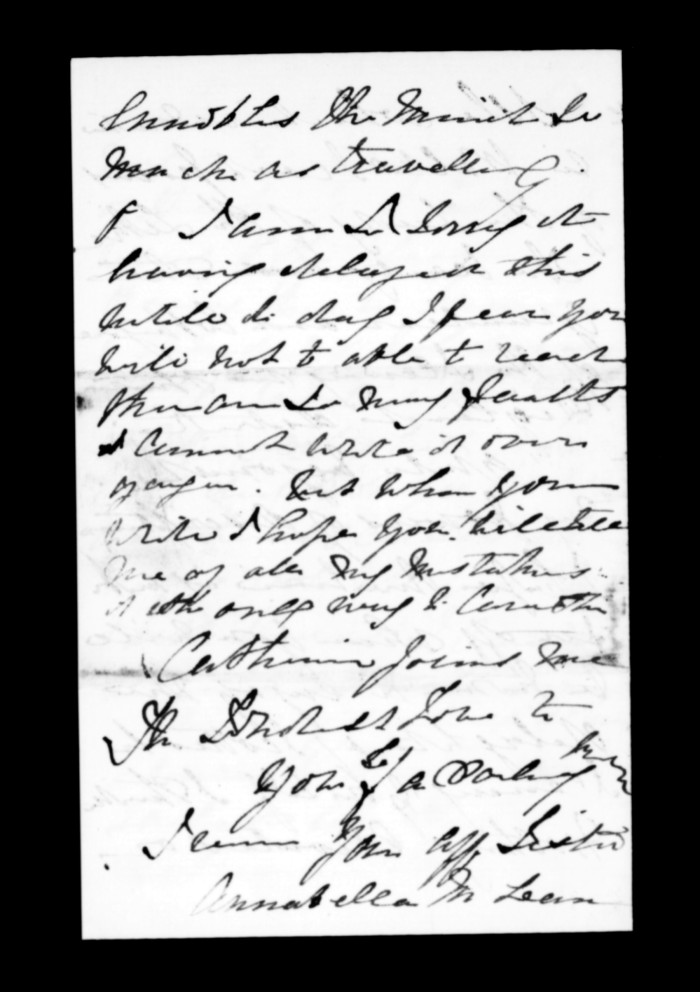 Ennobles the mind so
much as travelling.
I am so sorry at
having delayed this
until to day I fear you
will not be able to read
there are so many faults
I cannot write it over
again. but when you
write I hope you will tell
me of all my mistakes
it is the only way to cure them
Catherine joins me
in kindest love to
you &
I am your aff sister
Annabella McLean